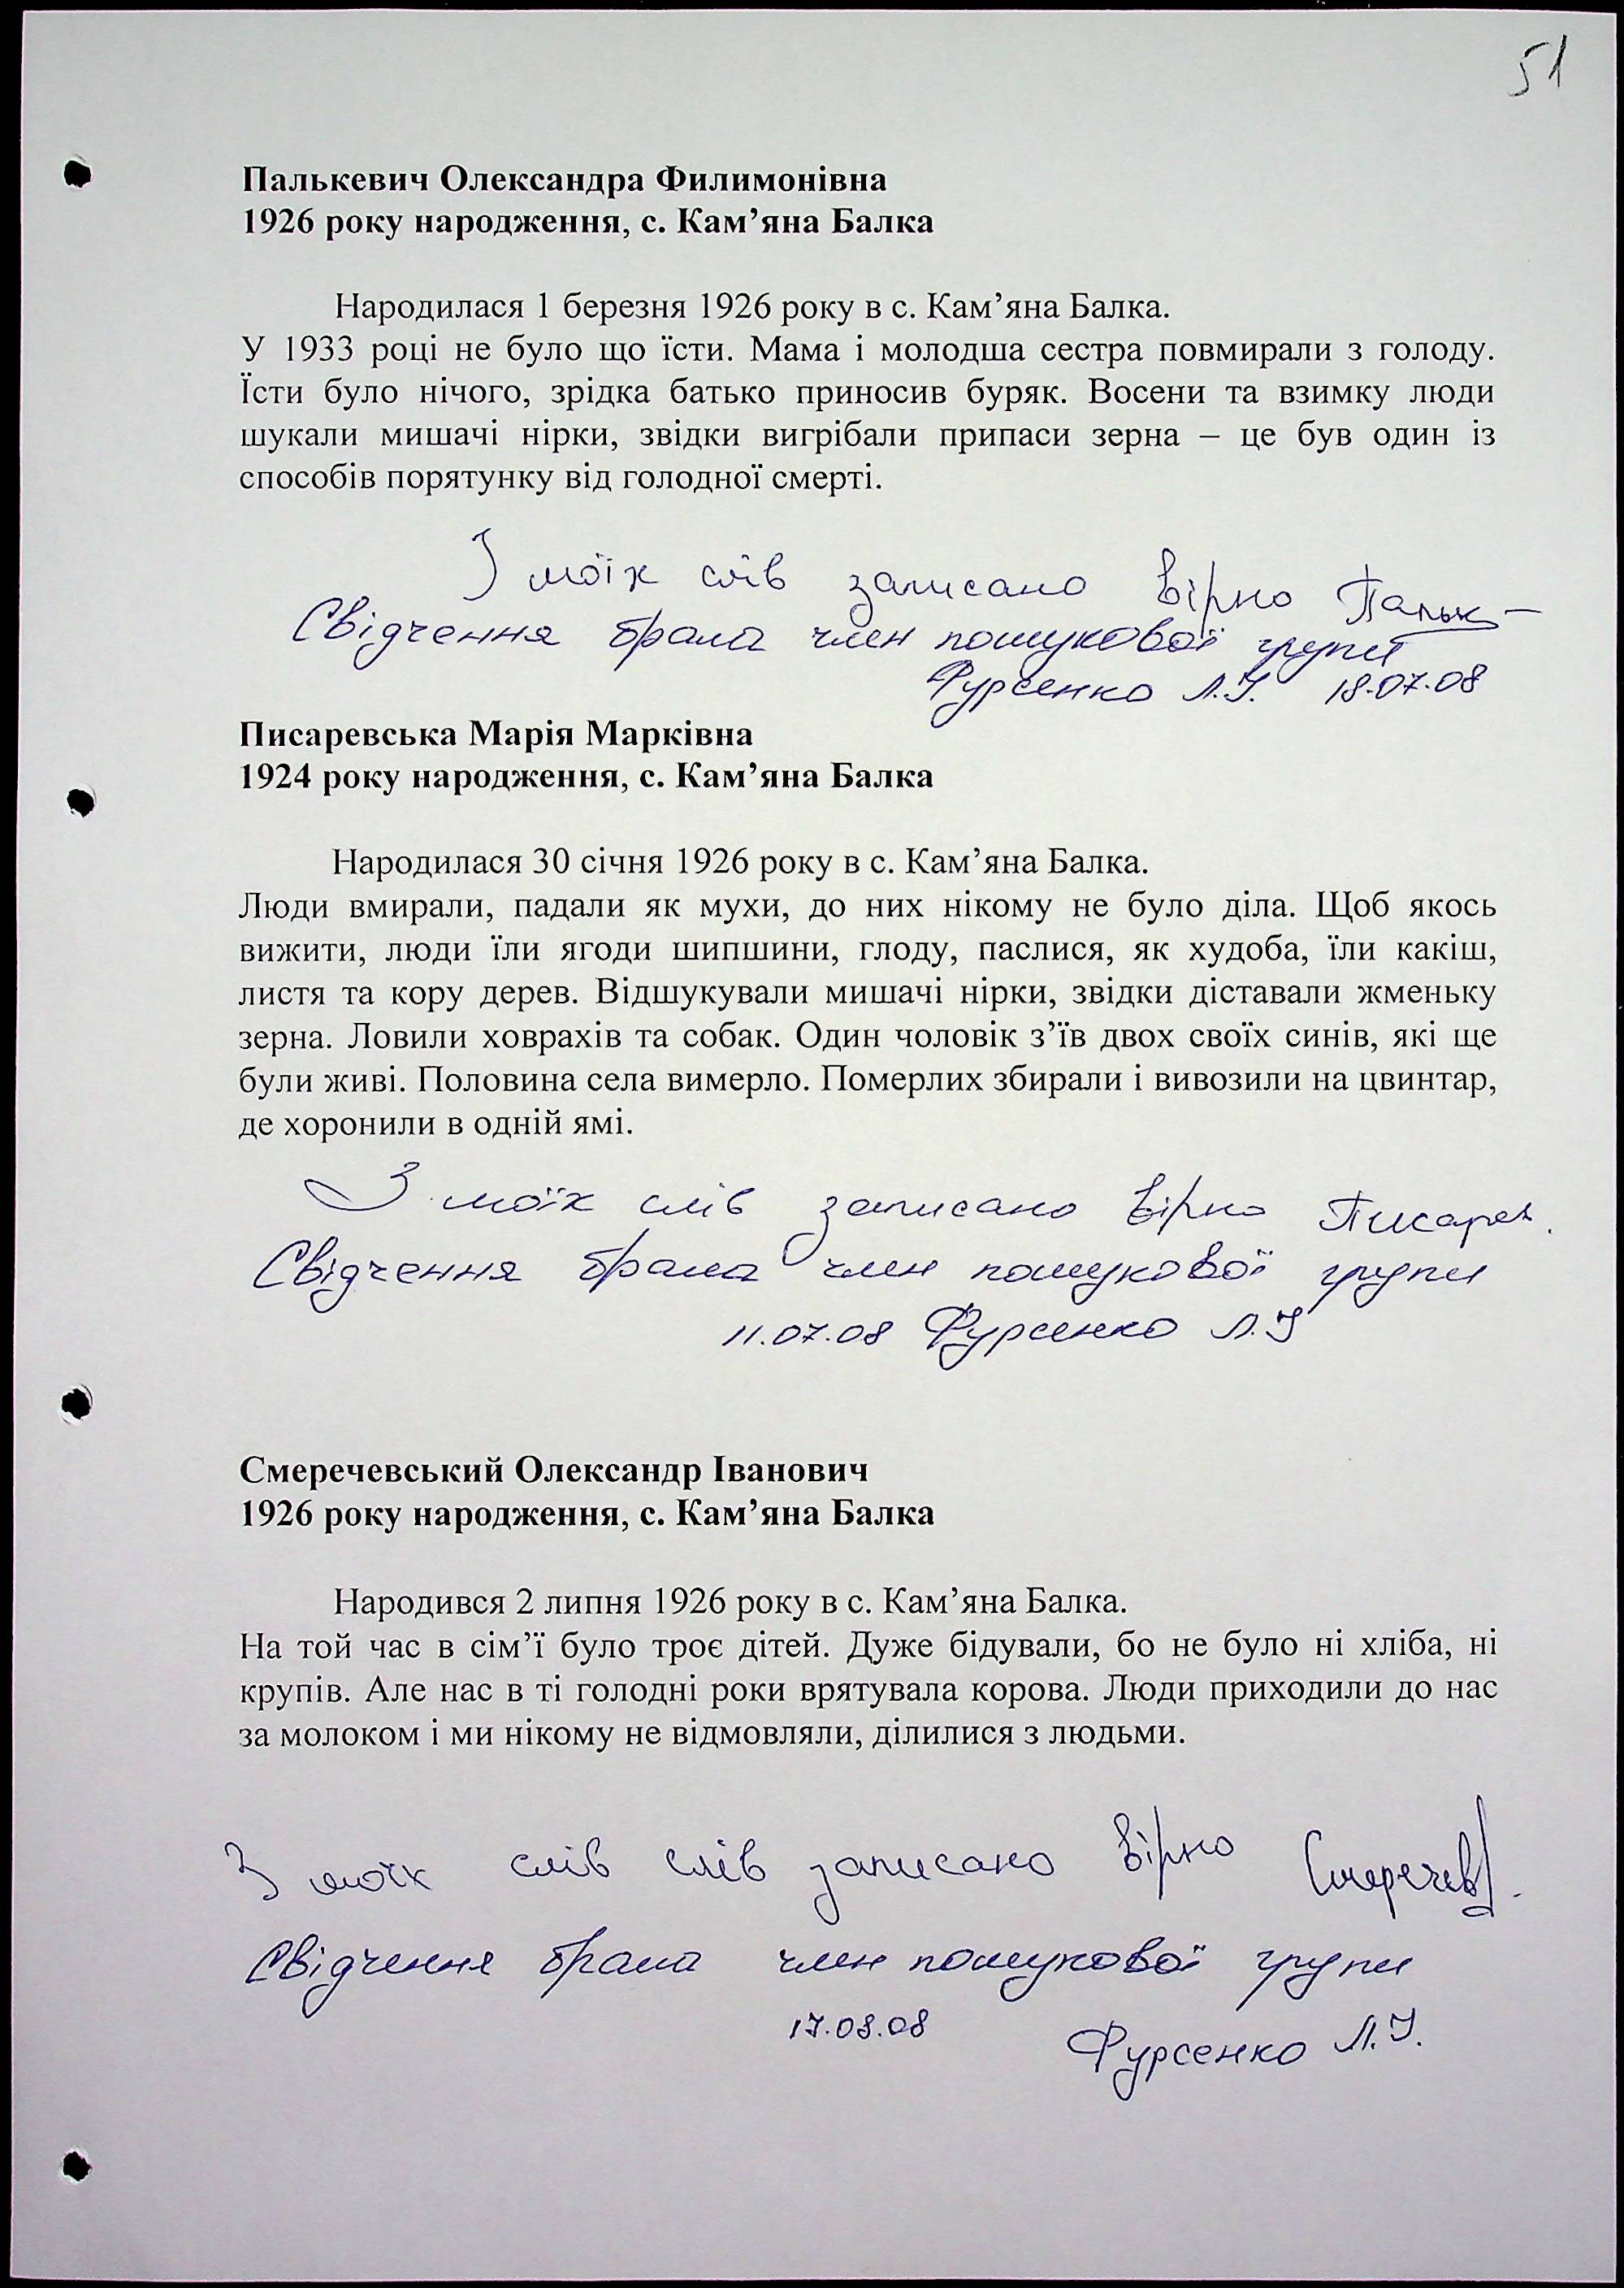 51
Палькевич Олександра Филимонівна
1926 року народження, с. Кам’яна Балка
Народилася 1 березня 1926 року в с. Кам’яна Балка.
У 1933 році не було що їсти. Мама і молодша сестра повмирали з голоду.
Їсти було нічого, зрідка батько приносив буряк. Восени та взимку люди
шукали мишачі нірки, звідки вигрібали припаси зерна – це був один із
способів порятунку від голодної смерті.
З моїх слів записано вірно Пальк
Свідчення брала член пошукової групи
Фурсенко Л.І. 18.07.08
Писаревська Марія Марківна
1924 року народження, с. Кам’яна Балка
Народилася 30 січня 1926 року в с. Кам’яна Балка.
Люди вмирали, падали як мухи, до них нікому не було діла. Щоб якось
вижити, люди їли ягоди шипшини, глоду, паслися, як худоба, їли какіш,
листя та кору дерев. Відшукували мишачі нірки, звідки діставали жменьку
зерна. Ловили ховрахів та собак. Один чоловік з’їв двох своїх синів, які ще
були живі. Половина села вимерло. Померлих збирали і вивозили на цвинтар,
де хоронили в одній ямі.
З моїх слів записано вірно Писарев.
Свідчення брала член пошукової групи
11.07.08 Фурсенко Л.І
Смеречевський Олександр Іванович
1926 року народження, с. Кам’яна Балка
Народився 2 липня 1926 року в с. Кам’яна Балка.
На той час в сім’ї було троє дітей. Дуже бідували, бо не було ні хліба, ні
крупів. Але нас в ті голодні роки врятувала корова. Люди приходили до нас
за молоком і ми нікому не відмовляли, ділилися з людьми.
З моїх слів слів записано вірно Смеречев
Свідчення брала член пошукової групи
17.08.08 Фурсенко Л.І.